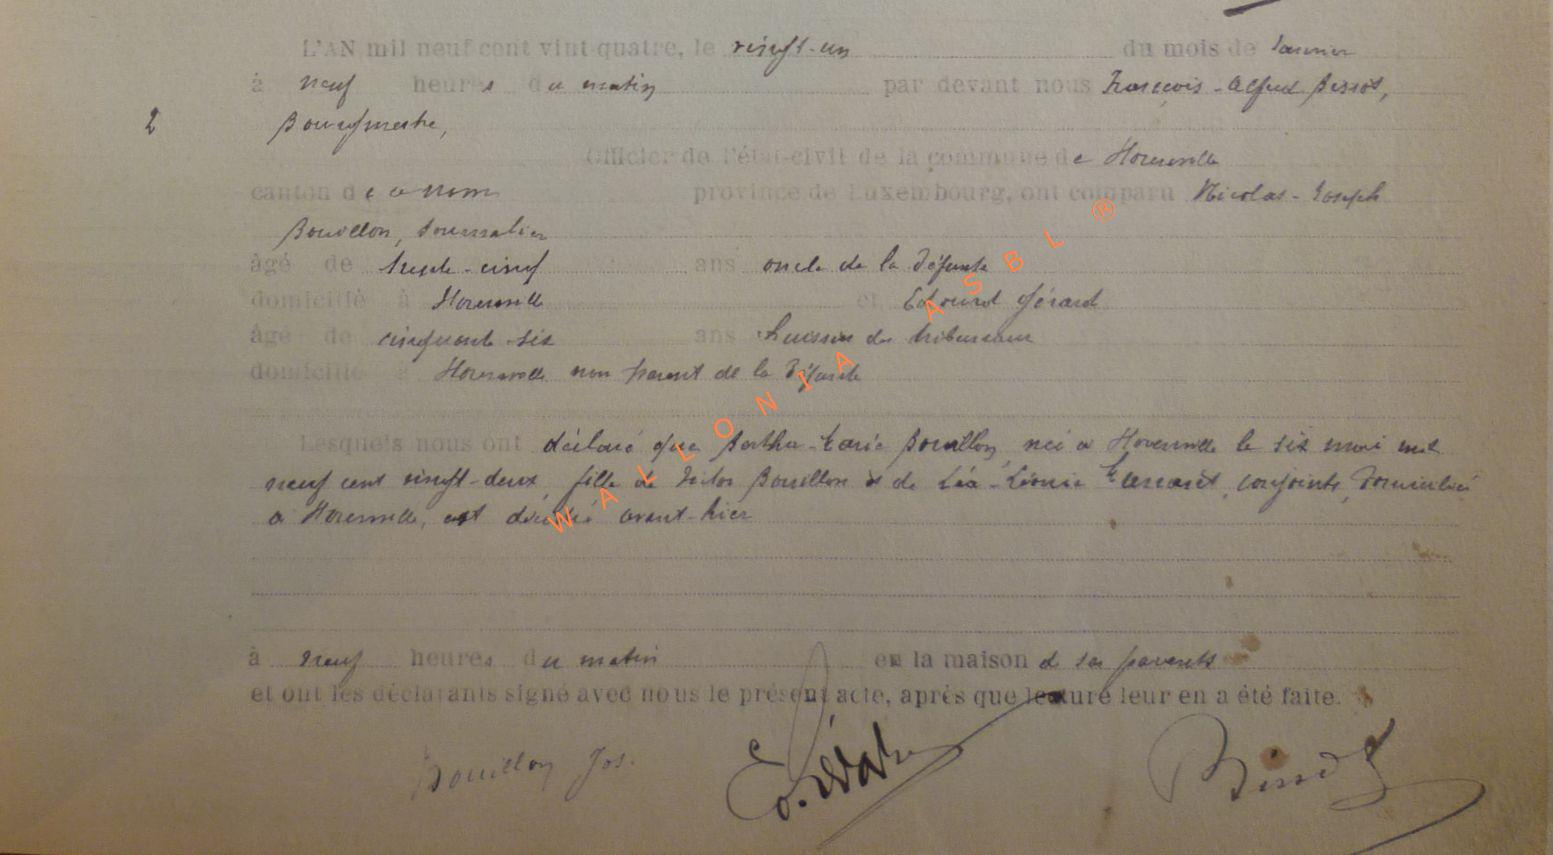 L'AN mil neuf cent vint quatre, le vingt-un du mois de Janvier
à neuf heures du matin par devant nous François-Alfred Bissot,
2 Bourgmestre,
Officier de l'état-civil de la commune de Houremelle
canton de ce nom province de Luxembourg, ont comparu Nicolas-Joseph
Bouillon, Journalier
âgé de trente-cinq ans oncle de la défunte
domicilié à et Edouard Gérard
âgé de cinquante-six ans huissier des tribunaux
domicilié à non parent de la défunte
Lesquels nous ont déclaré que Bertha-Marie Bouillon, née à le six mai mil
neuf cent vingt-deux, fille de Victor Bouillon et de Léa-Léonie conjoints, domiciliés
à est décédé avant-hier
à neuf heures du matin en la maison de ses parents
et ont les déclarants signé avec nous le présent acte, après que lecture leur en a été faite.
Bouillon Jos.
Bissot
WALLONIA ASBL®